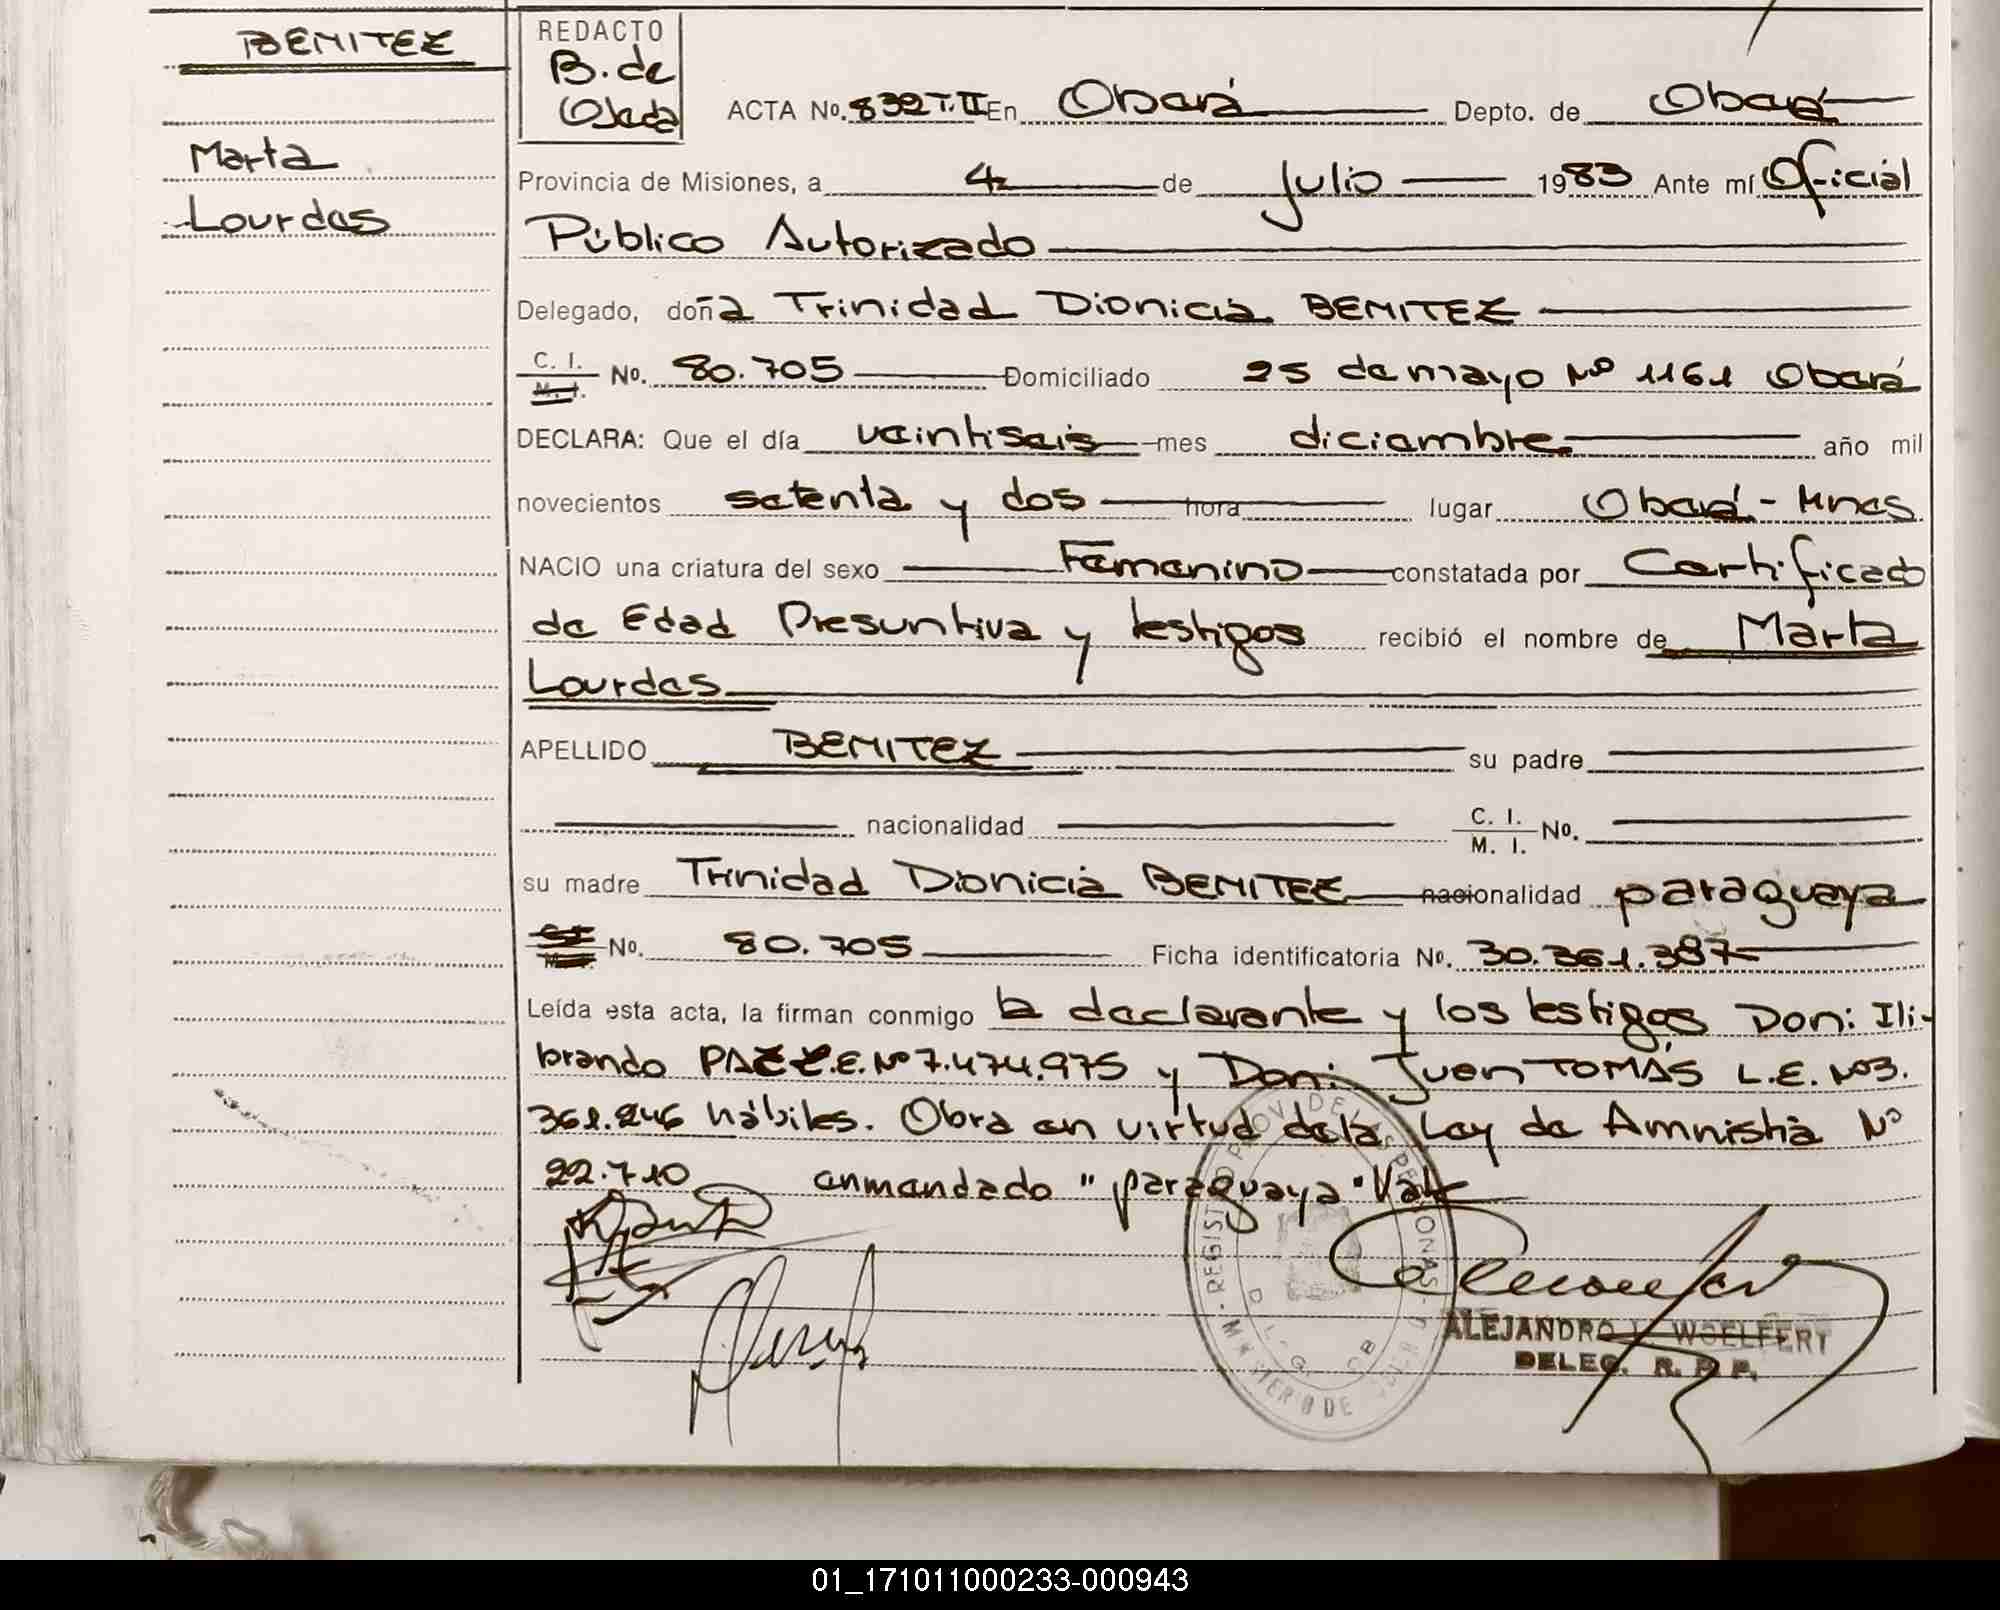 BENITEZ
Marta
Lourdes
REDACTO
B. de
Ojeda
ACTA No. 832 T. II En Oberá Depto. de Oberá
Provincia de Misiones, a 4 de julio 1983 Ante mí Oficial
Público Autorizado
Delegado, doña Trinidad Dionicia BENITEZ
C. I. M. I. No. 80.705 Domiciliado 25 de mayo Nº 1161 Oberá
DECLARA: Que el día veintiseis mes diciembre año mil
novecientos setenta y dos hora lugar Oberá - Mnes
NACIO una criatura del sexo Femenino constatada por Certificado
de Edad Presuntiva y testigos recibió el nombre de Marta
Lourdes
APELLIDO BENITEZ su padre
nacionalidad C. I. M. I. No.
su madre Trinidad Dionicia BENITEZ nacionalidad paraguaya
No. 80.705 Ficha identificatoria No. 30.361.387
Leída esta acta, la firman conmigo la declarante y los testigos Don: Ili-
brando PAEZ L.E. Nº 7.474.975 y Don: Juan TOMÁS L.E. Nº 3.
361.246 hábiles. Obra en virtud de la Ley de Amnistia Nº
22.710 enmendado "paraguaya" Vale
REGISTRO PROV. DE LAS PERSONAS
MINISTERIO DE
ALEJANDRO WOELFERT
DELEG. R. P. P.
01_171011000233-000943